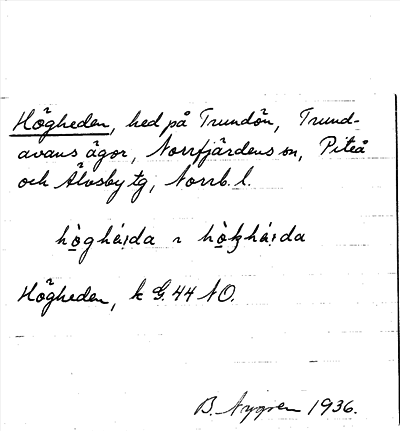 Högheden, hed på Trundön, Trund-
avans ägor, Norrfjärdens sn, Piteå
och Älvsby tg, Norrb. l.
hò̱ghá;da ~ hò̱khá;da
Högheden, k G. 44 NO.
B. Nygren 1936.